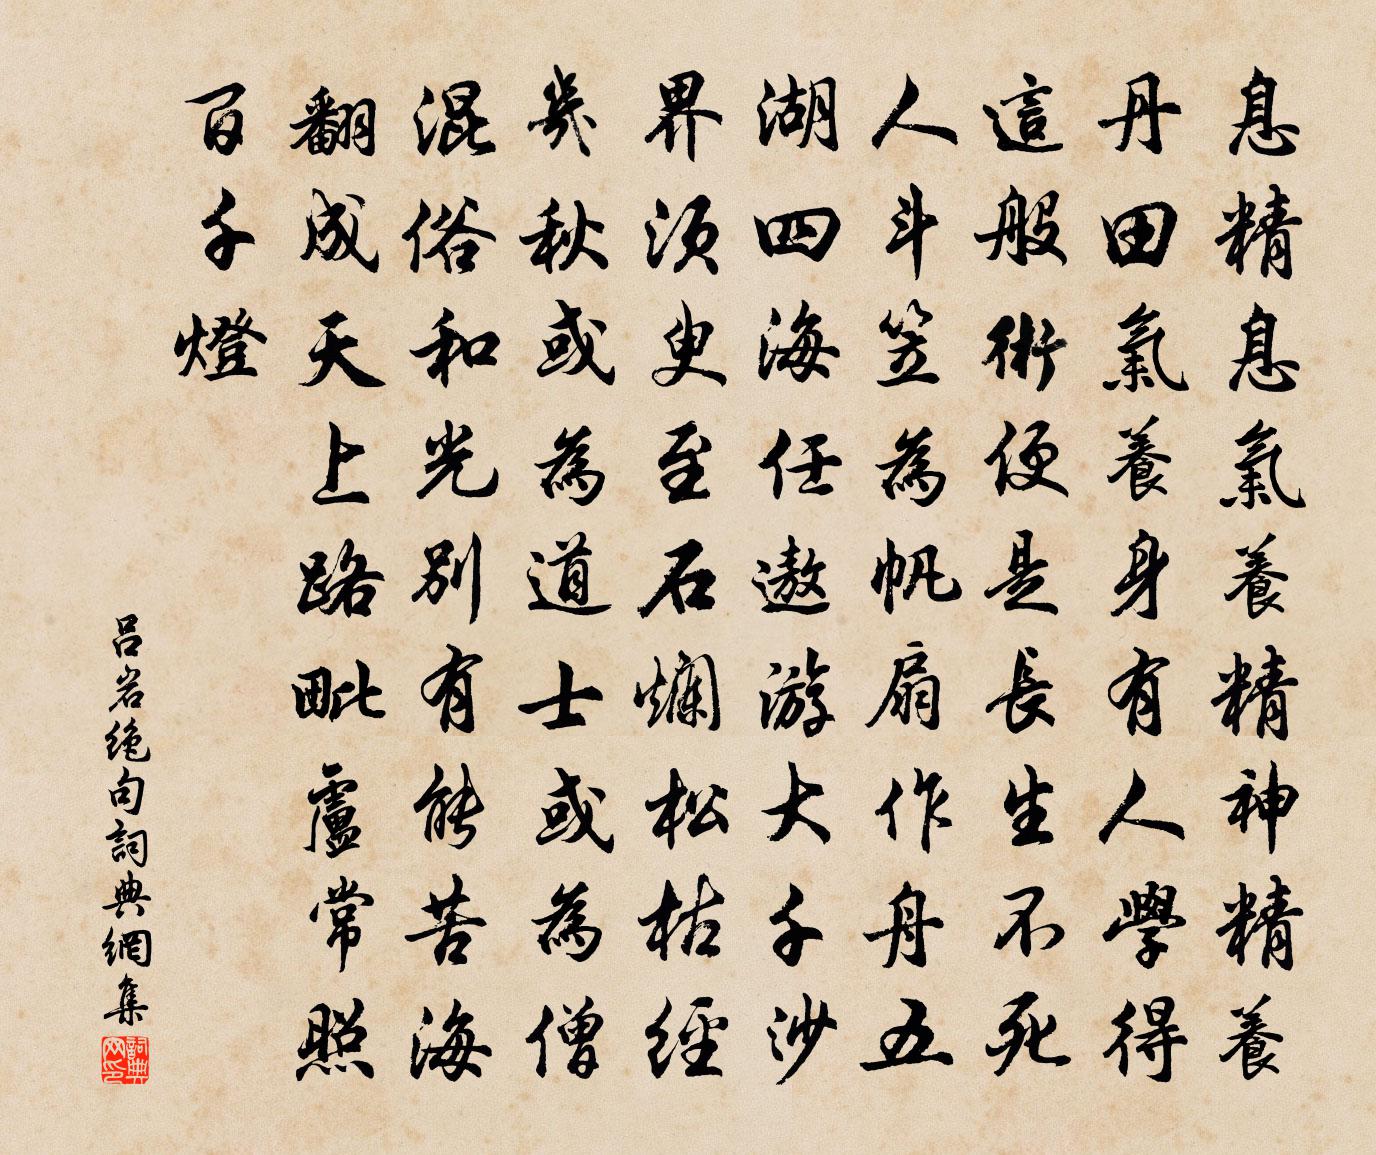 息精息氣養精神精養
丹田氣養身有人學得
這般術便是長生不死
人斗笠為帆扇作舟五
湖四海任遨游大千沙
界須臾至石爛松枯經
幾秋或為道士或為僧
混俗和光別有能苦海
翻成天上路毗盧常照
百千燈
呂岩絶句詞典網集
詞典
网印